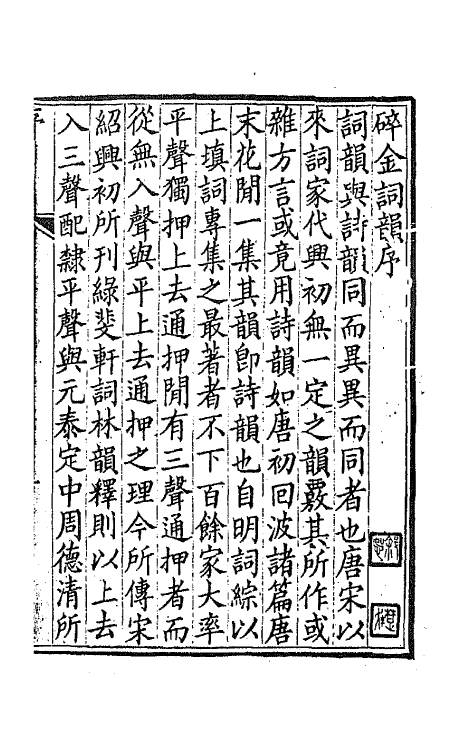 碎金詞韻序
詞韻與詩韻同而異異而同者也唐宋以
來詞家代興初無一定之韻覈其所作或
雜方言或竟用詩韻如唐初回波諸篇唐
末花閒一集其韻卽詩韻也自明詞綜以
上填詞專集之最著者不下百餘家大率
平聲獨押上去通押閒有三聲通押者而
從無入聲與平上去通押之理今所傳宋
紹興初所刊綠斐軒詞林韻釋則以上去
入三聲配隸平聲與元泰定中周德清所